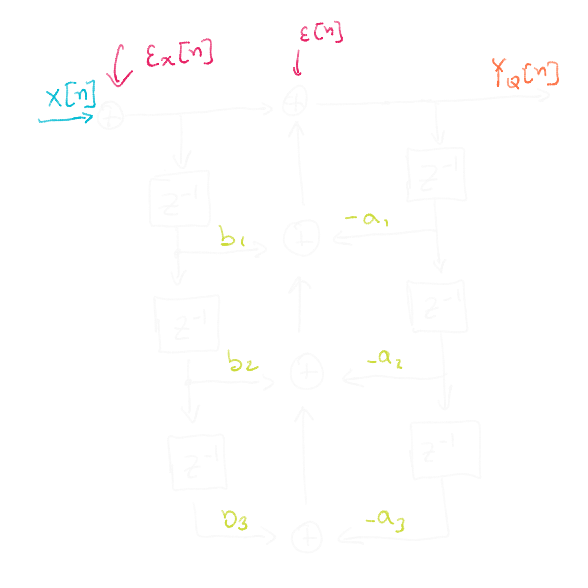 ε[n]
εx[n]
YQ[n]
X[n]
z⁻¹
z⁻¹
-a₁
b₁
z⁻¹
z⁻¹
b₂
-a₂
z⁻¹
z⁻¹
b₃
-a₃